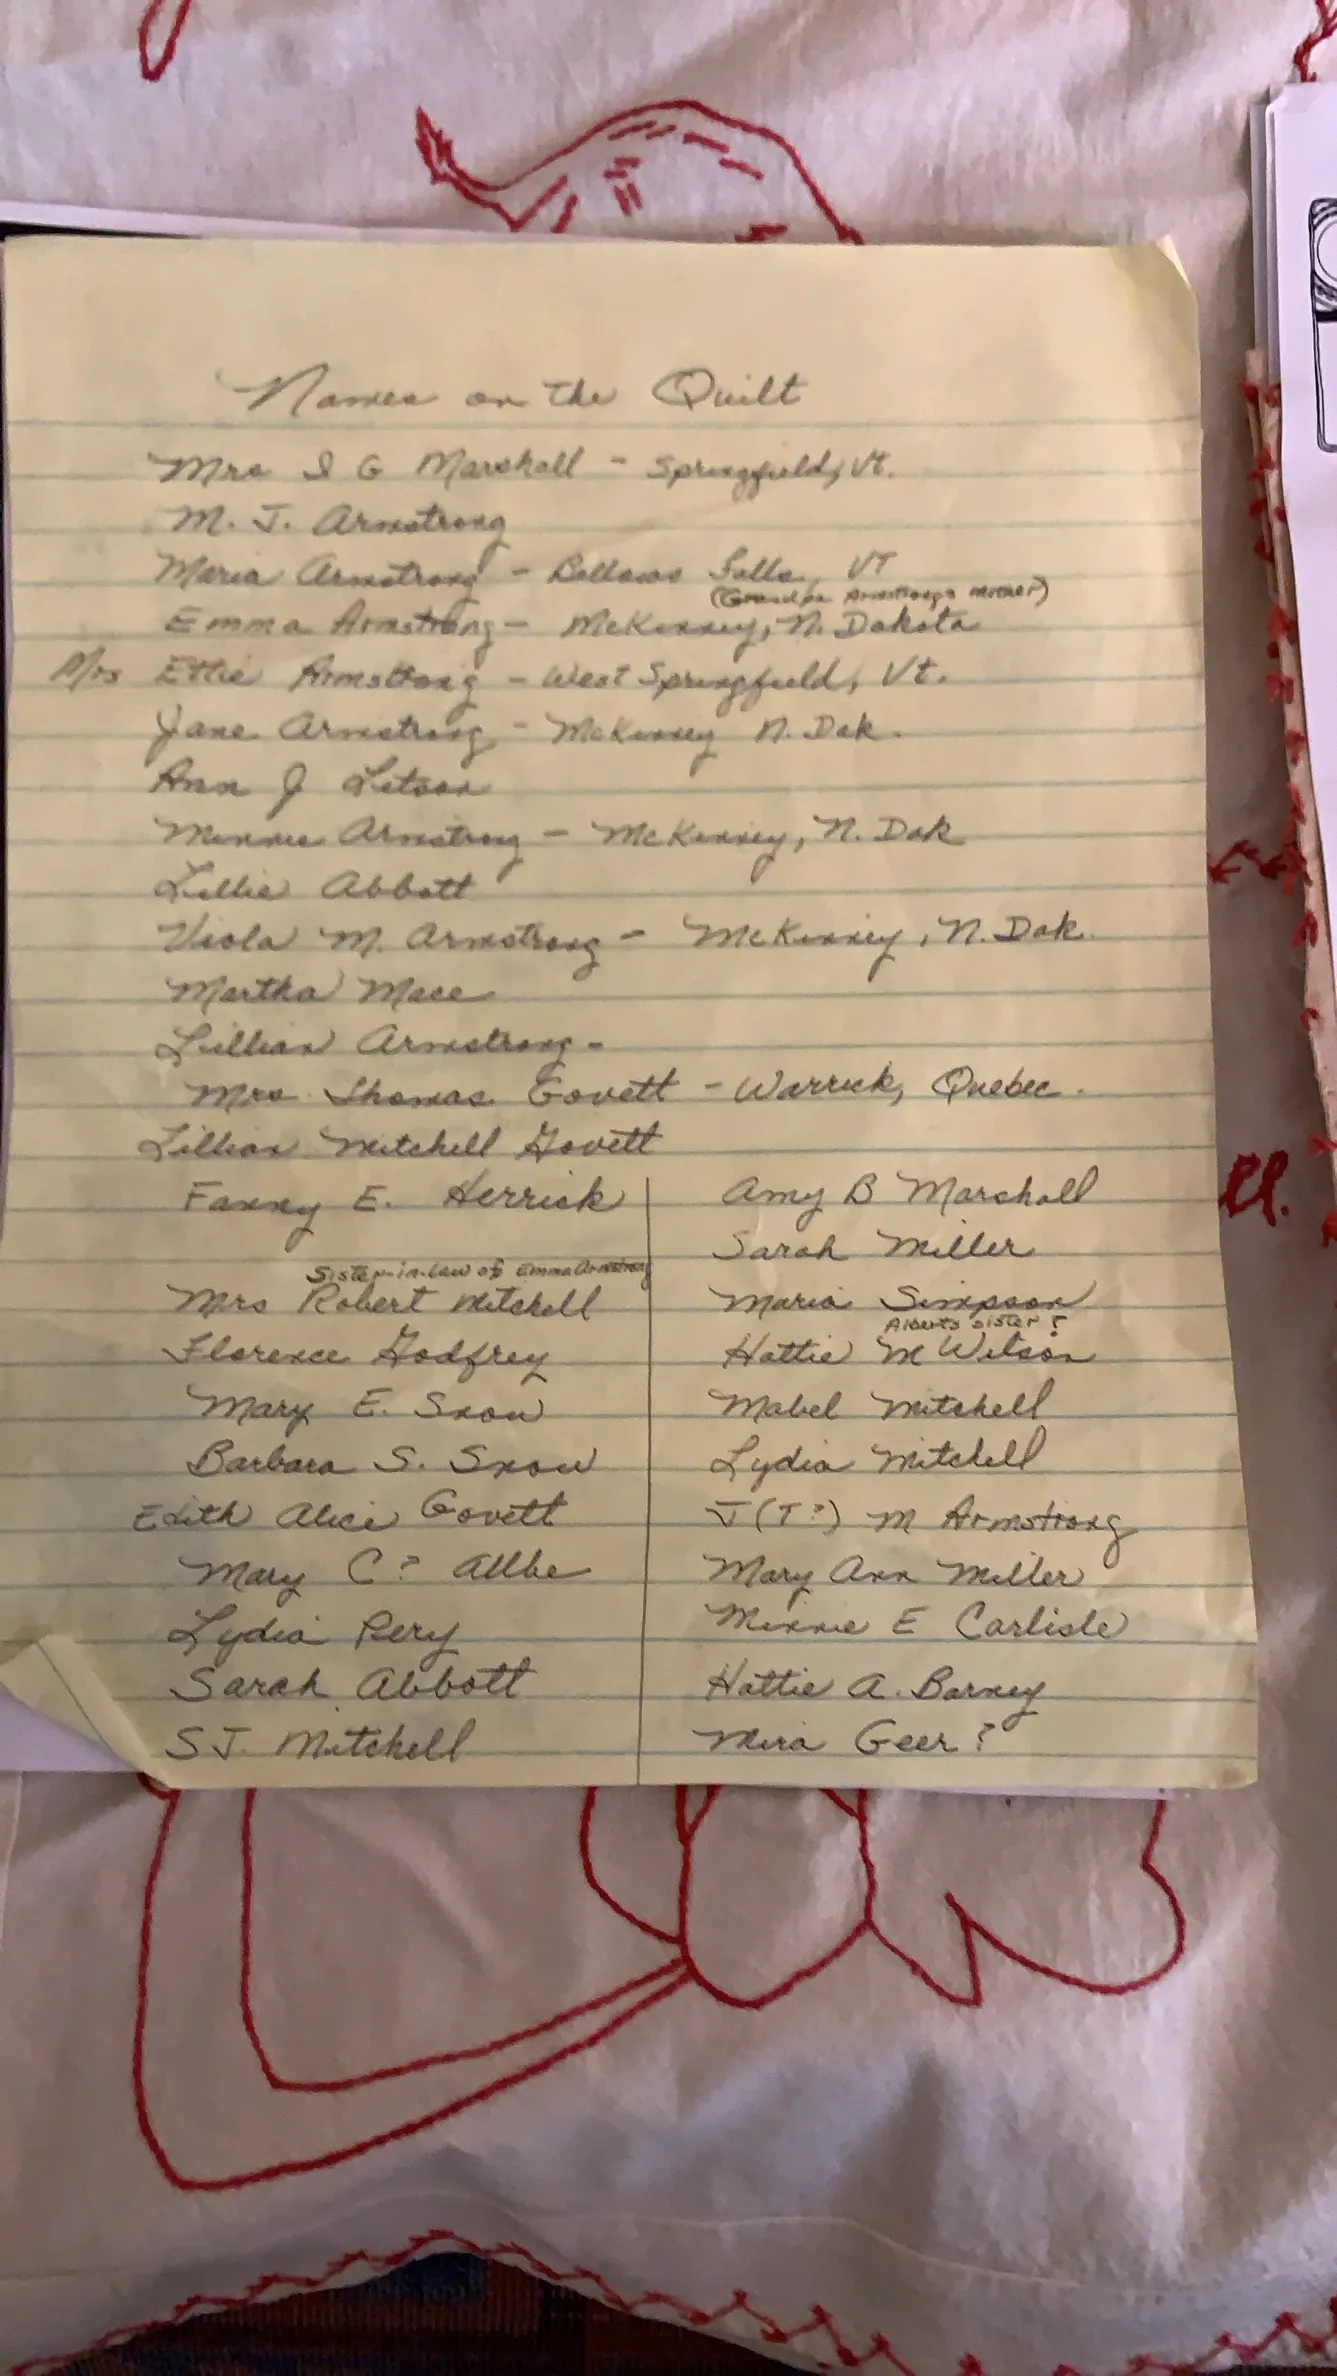 Names on the Quilt
Mrs I G Marshall - Springfield, Vt.
M. J. Armstrong
Maria Armstrong - Bellows Falls, VT
(Grandpa Armstrong's mother)
Emma Armstrong - McKinney, N. Dakota
Mrs Ettie Armstrong - West Springfield, Vt.
Jane Armstrong - McKinney N. Dak.
Ann J Letson
Minnie Armstrong - McKinney, N. Dak
Lillie Abbott
Viola M. Armstrong - McKinney, N. Dak.
Martha Mace
Lillian Armstrong -
Mrs. Thomas Govett - Warrick, Quebec.
Lillian Mitchell Govett
Fanny E. Herrick
Sister-in-law of Emma Armstrong
Mrs Robert Mitchell
Florence Godfrey
Mary E. Snow
Barbara S. Snow
Edith Alice Govett
Mary C? Allbe
Lydia Pery
Sarah Abbott
S J. Mitchell
Amy B Marshall
Sarah Miller
Maria Simpson
Alberts sister?
Hattie M Wilson
Mabel Mitchell
Lydia Mitchell
J (T?) M Armstrong
Mary Ann Miller
Minnie E Carlisle
Hattie A. Barney
Mira Geer?